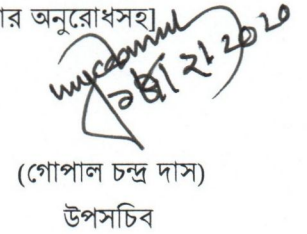 র অনুরোধসহ]
২০২০
(গোপাল চন্দ্র দাস)
উপসচিব